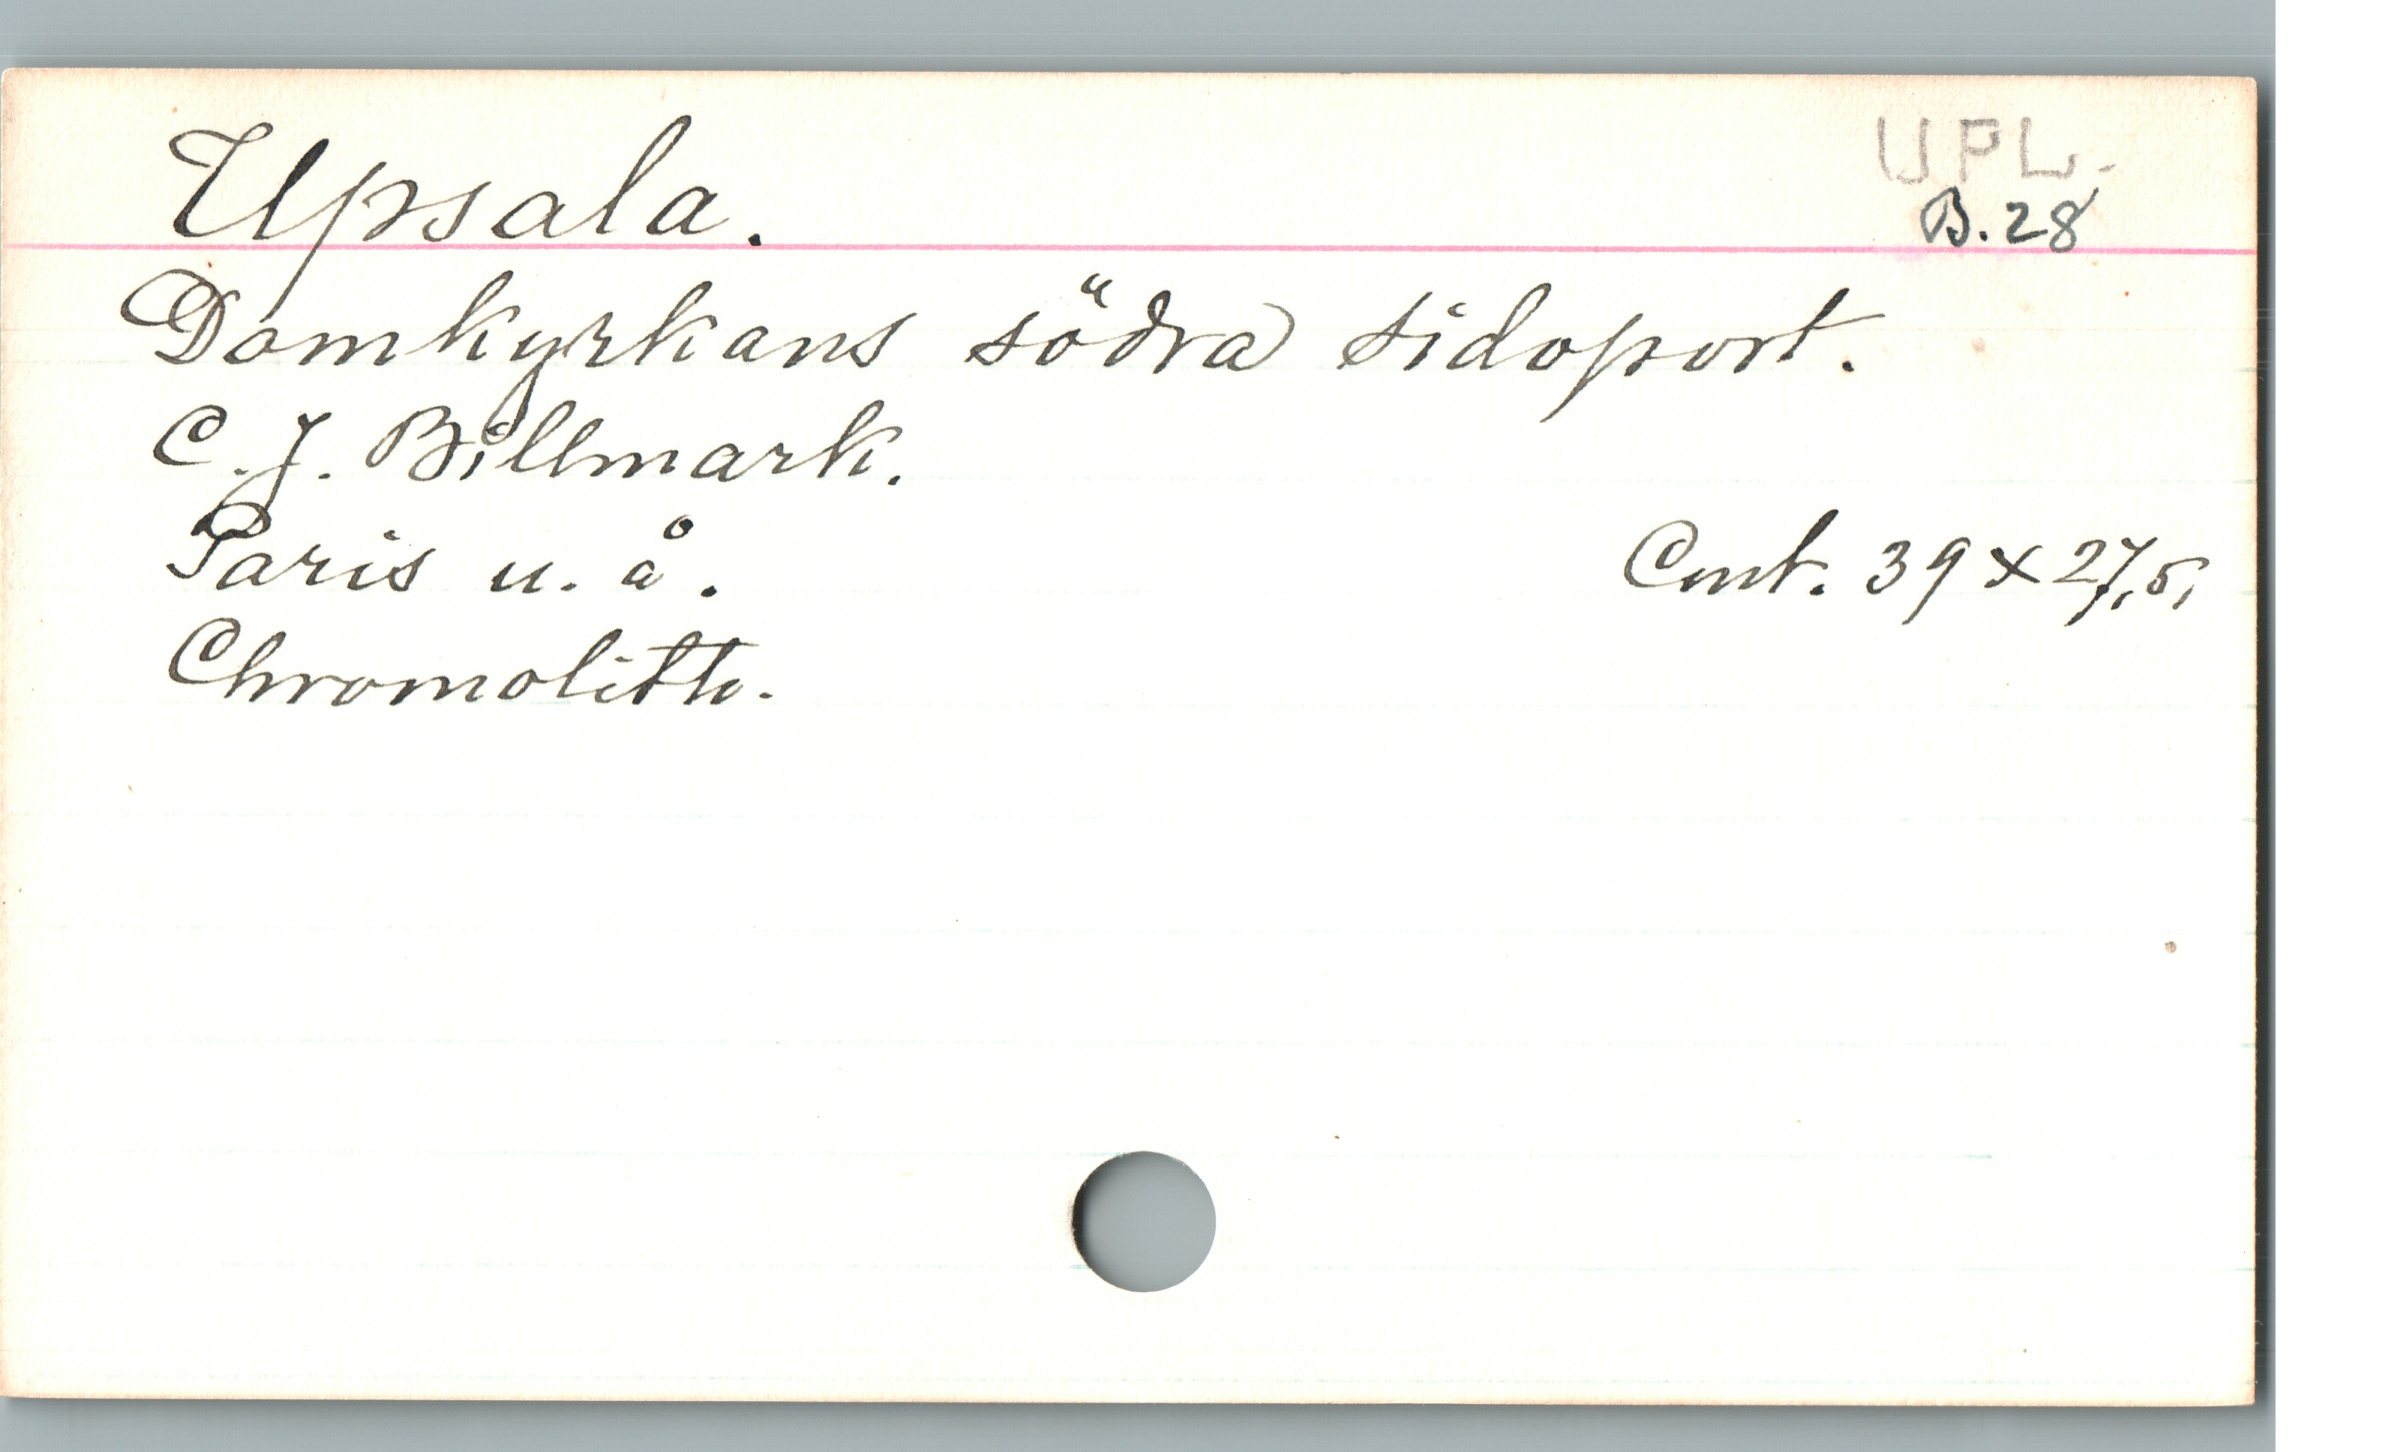 Upsala.
UPL.
B. 28
Domkyrkans södra sidoport.
C. J. Billmark.
Paris u. å.
Cent. 39 x 27,5,
Chromolith.